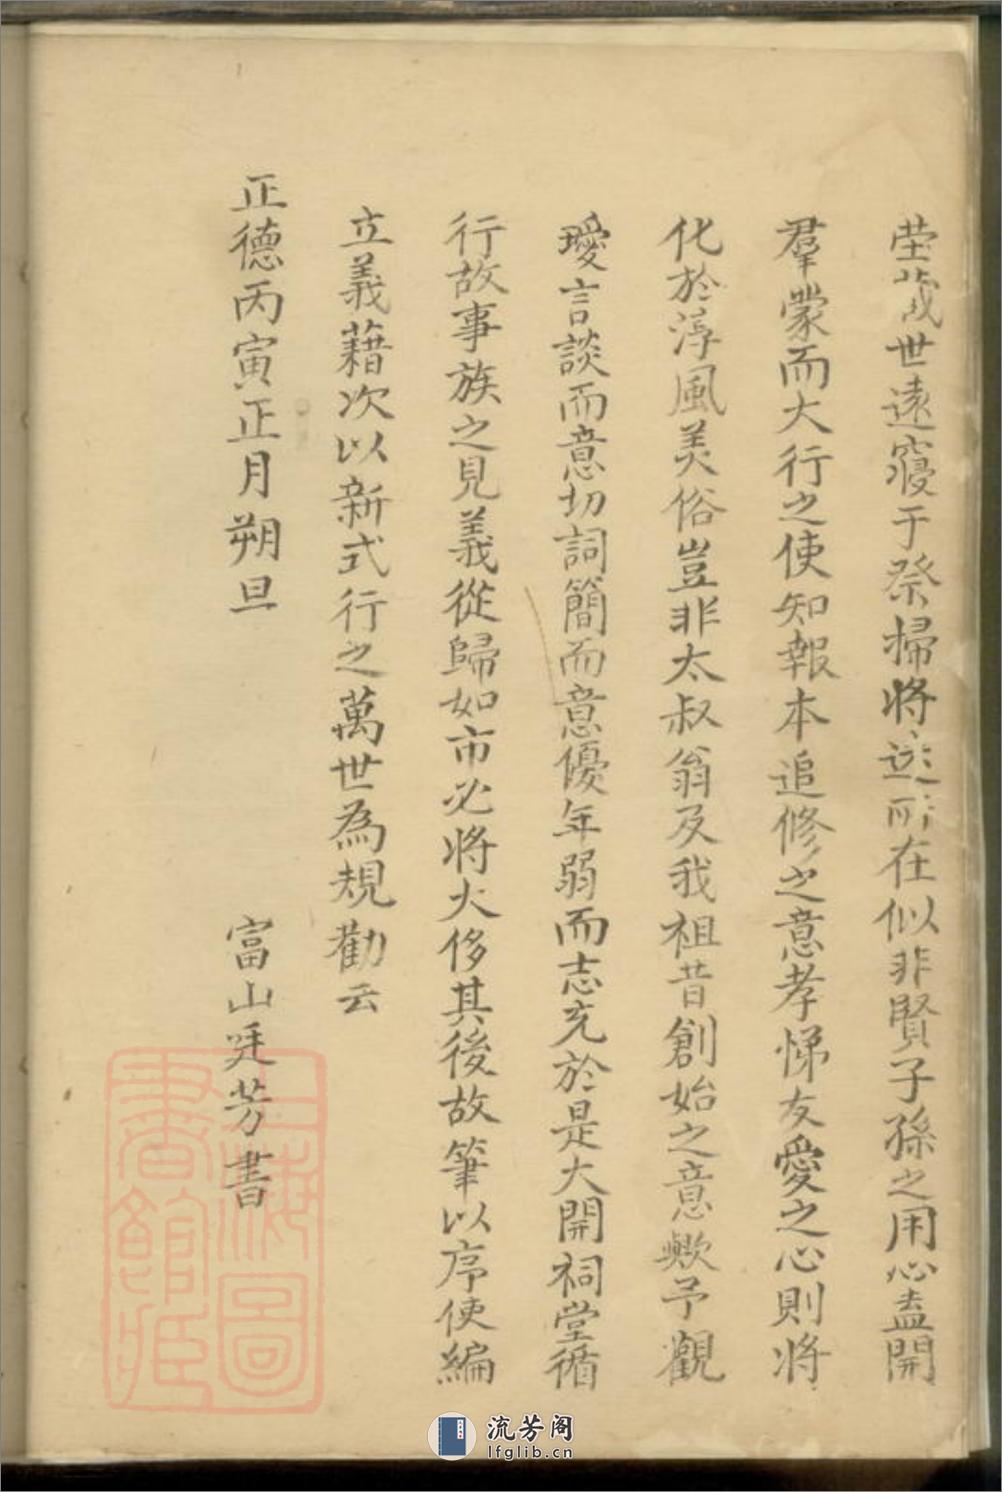 茔歲世遠寢于祭掃將迷所在似非賢子孫之用心盍開
羣蒙而大行之使知報本追修之意孝悌友愛之心則將
化於淳風美俗豈非太叔翁及我祖昔創始之意歟予觀
璦言談而意切詞簡而意優年弱而志充於是大開祠堂循
行故事族之見義從歸如市必將大侈其後故筆以序使編
立義藉次以新式行之萬世為規勸云
正德丙寅正月朔旦
富山廷芳書
上海圖書館藏
流芳阁
lfglib.cn